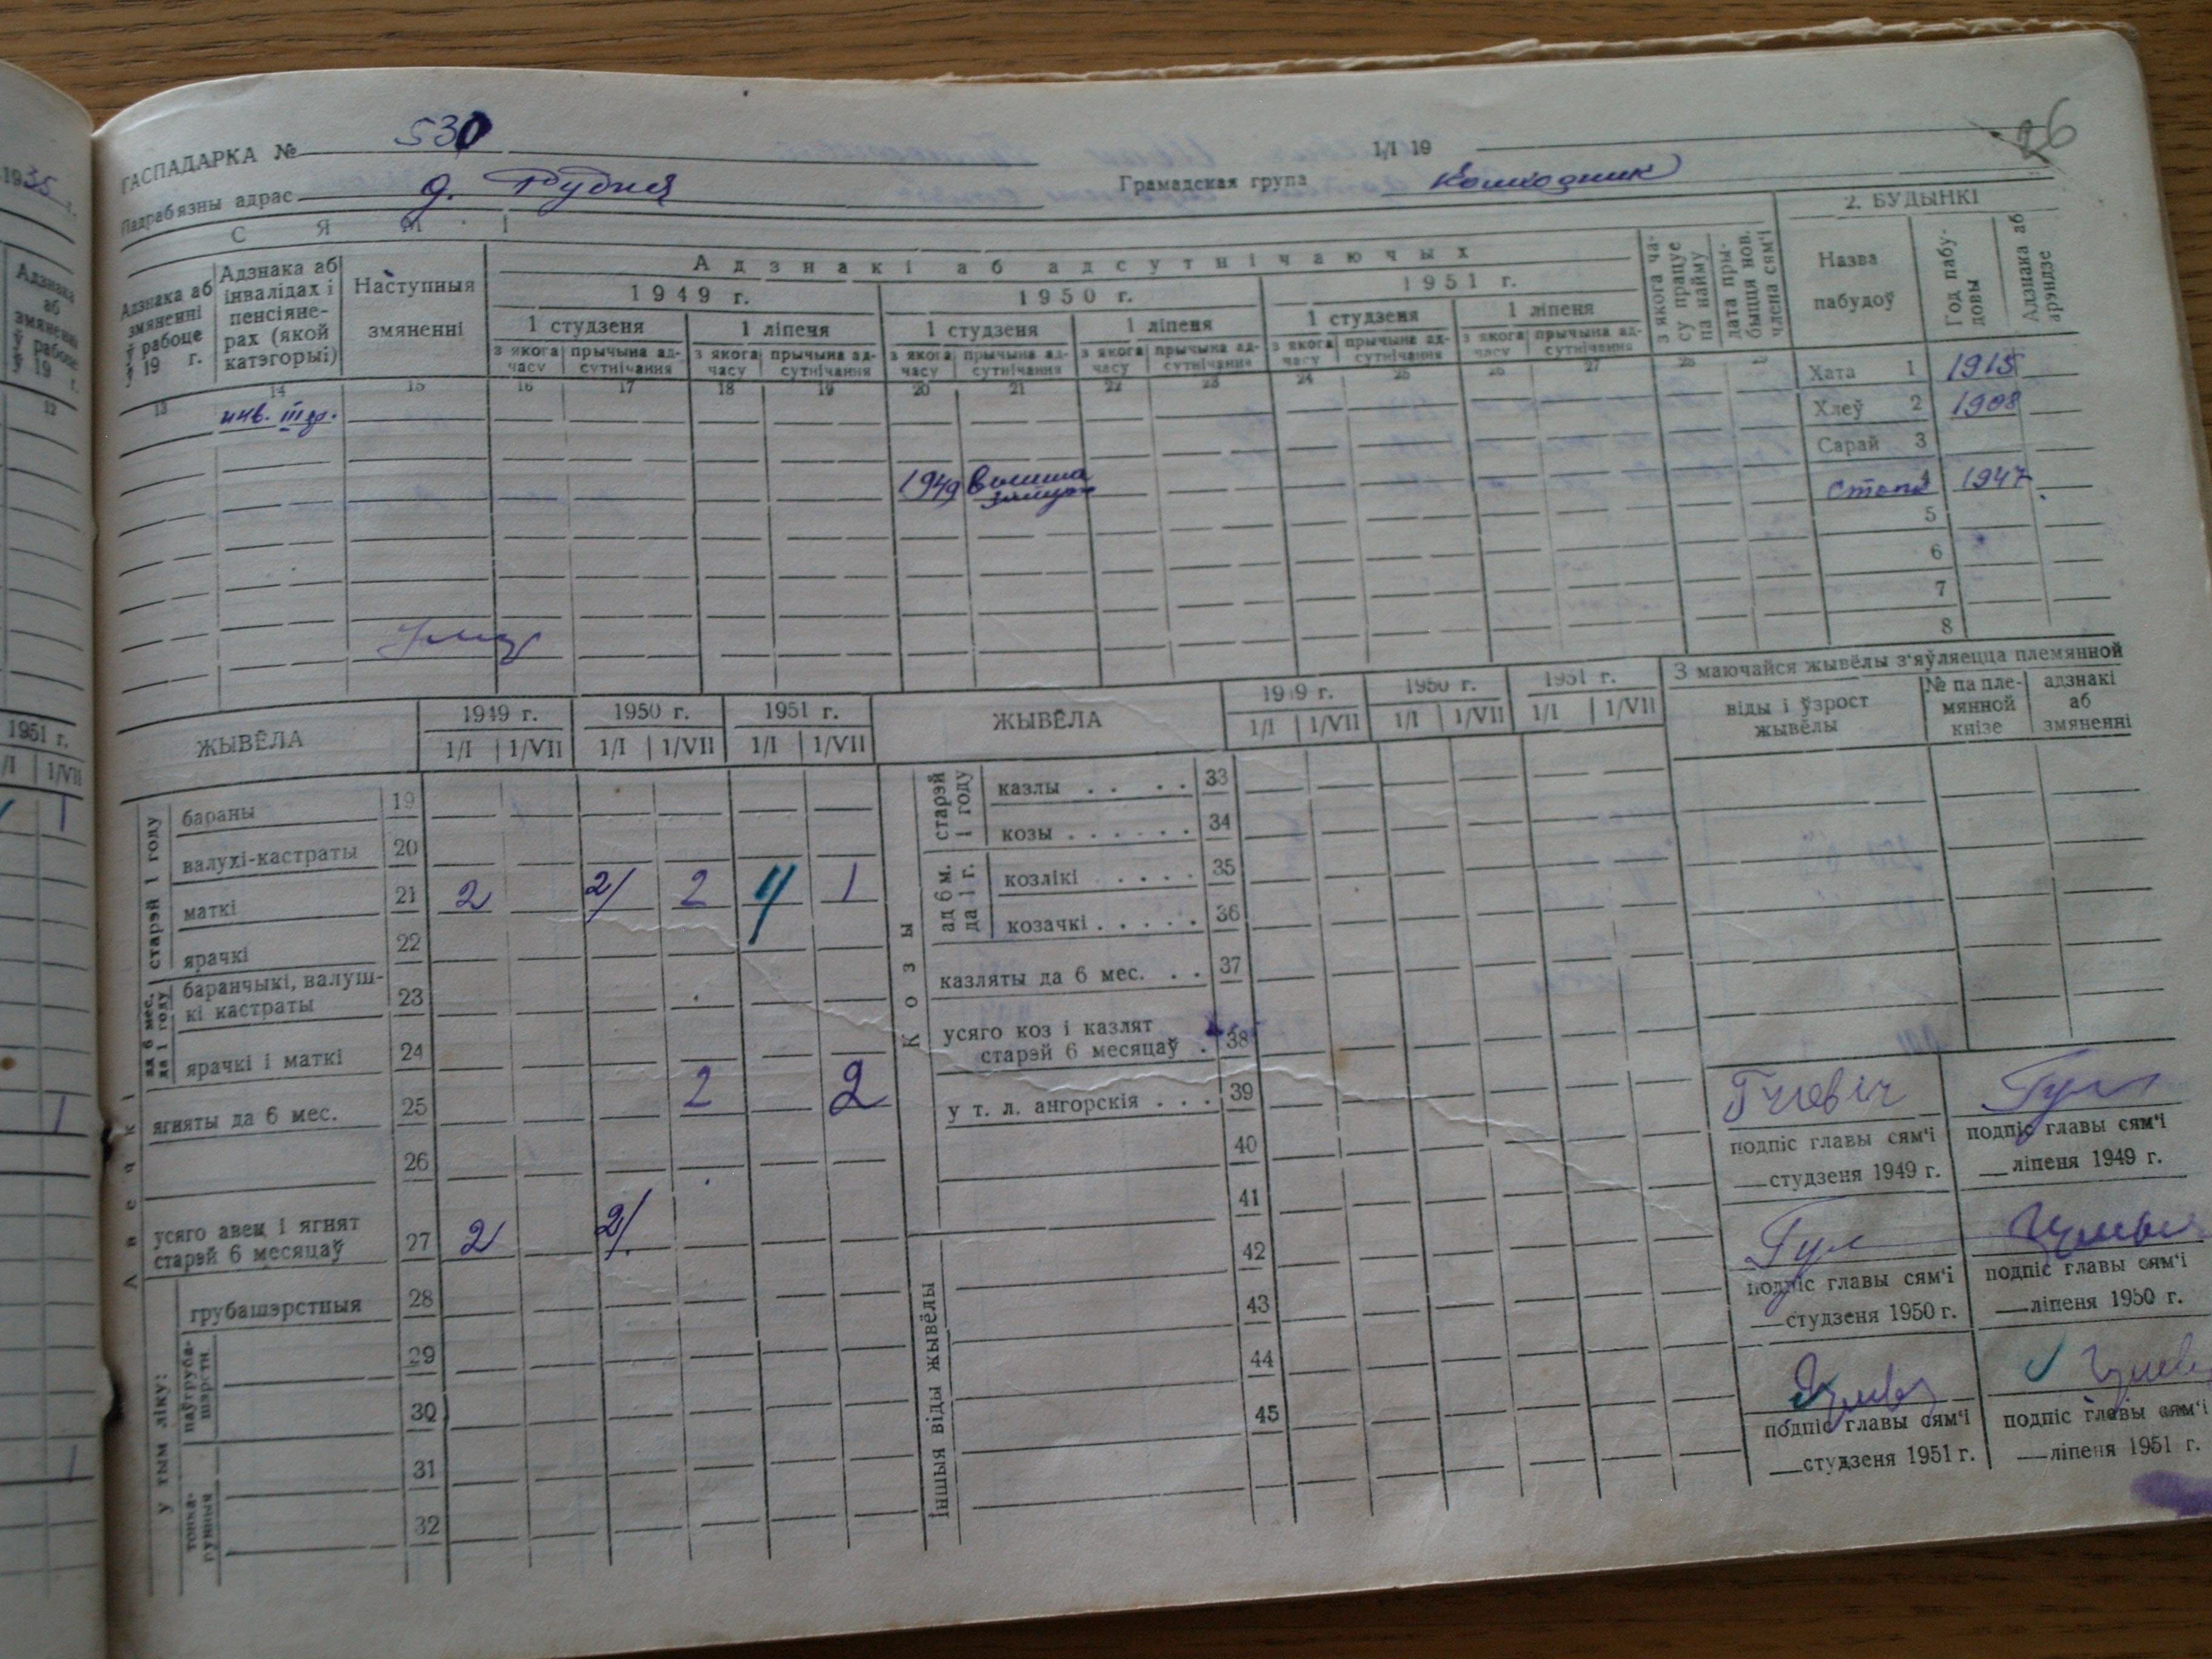 26
ГАСПАДАРКА № 530
1/I 19
Падрабязны адрас д. Рудня
Грамадская група колхозник
С Я М ' І
2. БУДЫНКІ
Адзнака аб змяненні ў рабоце ў 19 г.
Адзнака аб інвалідах і пенсіяне-рах (якой катэгорыі)
Наступныя змяненні
Адзнакі аб адсутнічаючых
1949 г. 1950 г. 1951 г.
1 студзеня 1 ліпеня 1 студзеня 1 ліпеня 1 студзеня 1 ліпеня
з якога часу прычына ад-сутнічання з якога часу прычына ад-сутнічання з якога часу прычына ад-сутнічання з якога часу прычына ад-сутнічання з якога часу прычына ад-сутнічання з якога часу прычына ад-сутнічання
з якога ча-су працуе па найму
дата пры-быцця нов. члена сям'і
Назва пабудоў
Год пабу-довы
Адзнака аб арэндзе
13 14 15 16 17 18 19 20 21 22 23 24 25 26 27 28 29
инв. III гр.
1949
Хата 1 1915
Хлеў 2 1908
Сарай 3
4 1947
5
6
7
8
ЖЫВЁЛА
1949 г. 1950 г. 1951 г.
1/I 1/VII 1/I 1/VII 1/I 1/VII
Авечкі
старэй 1 году
бараны 19
валухі-кастраты 20
маткі 21 2 2 2 1
ярачкі 22
ад 6 мес. да 1 году
баранчыкі, валуш-кі кастраты 23
ярачкі і маткі 24
ягняты да 6 мес. 25 2 2
26
усяго авец і ягнят старэй 6 месяцаў 27 2 2
у тым ліку:
грубашэрстныя 28
паўгруба-шэрстн.
29
30
тонка-рунныя
31
32
ЖЫВЁЛА
1949 г. 1950 г. 1951 г.
1/I 1/VII 1/I 1/VII 1/I 1/VII
Козы
старэй 1 году
казлы . . . . 33
козы . . . . . . 34
ад 6 м. да 1 г.
козлікі . . . . 35
козачкі . . . . . 36
казляты да 6 мес. . . 37
усяго коз і казлят старэй 6 месяцаў . 38
у т. л. ангорскія . . . 39
40
41
Іншыя віды жывёлы
42
43
44
45
З маючайся жывёлы з'яўляецца племянной
віды і ўзрост жывёлы
№ па пле-мянной кнізе
адзнакі аб змяненні
подпіс главы сям'і
студзеня 1949 г.
подпіс главы сям'і
ліпеня 1949 г.
подпіс главы сям'і
студзеня 1950 г.
подпіс главы сям'і
ліпеня 1950 г.
подпіс главы сям'і
студзеня 1951 г.
подпіс главы сям'і
ліпеня 1951 г.